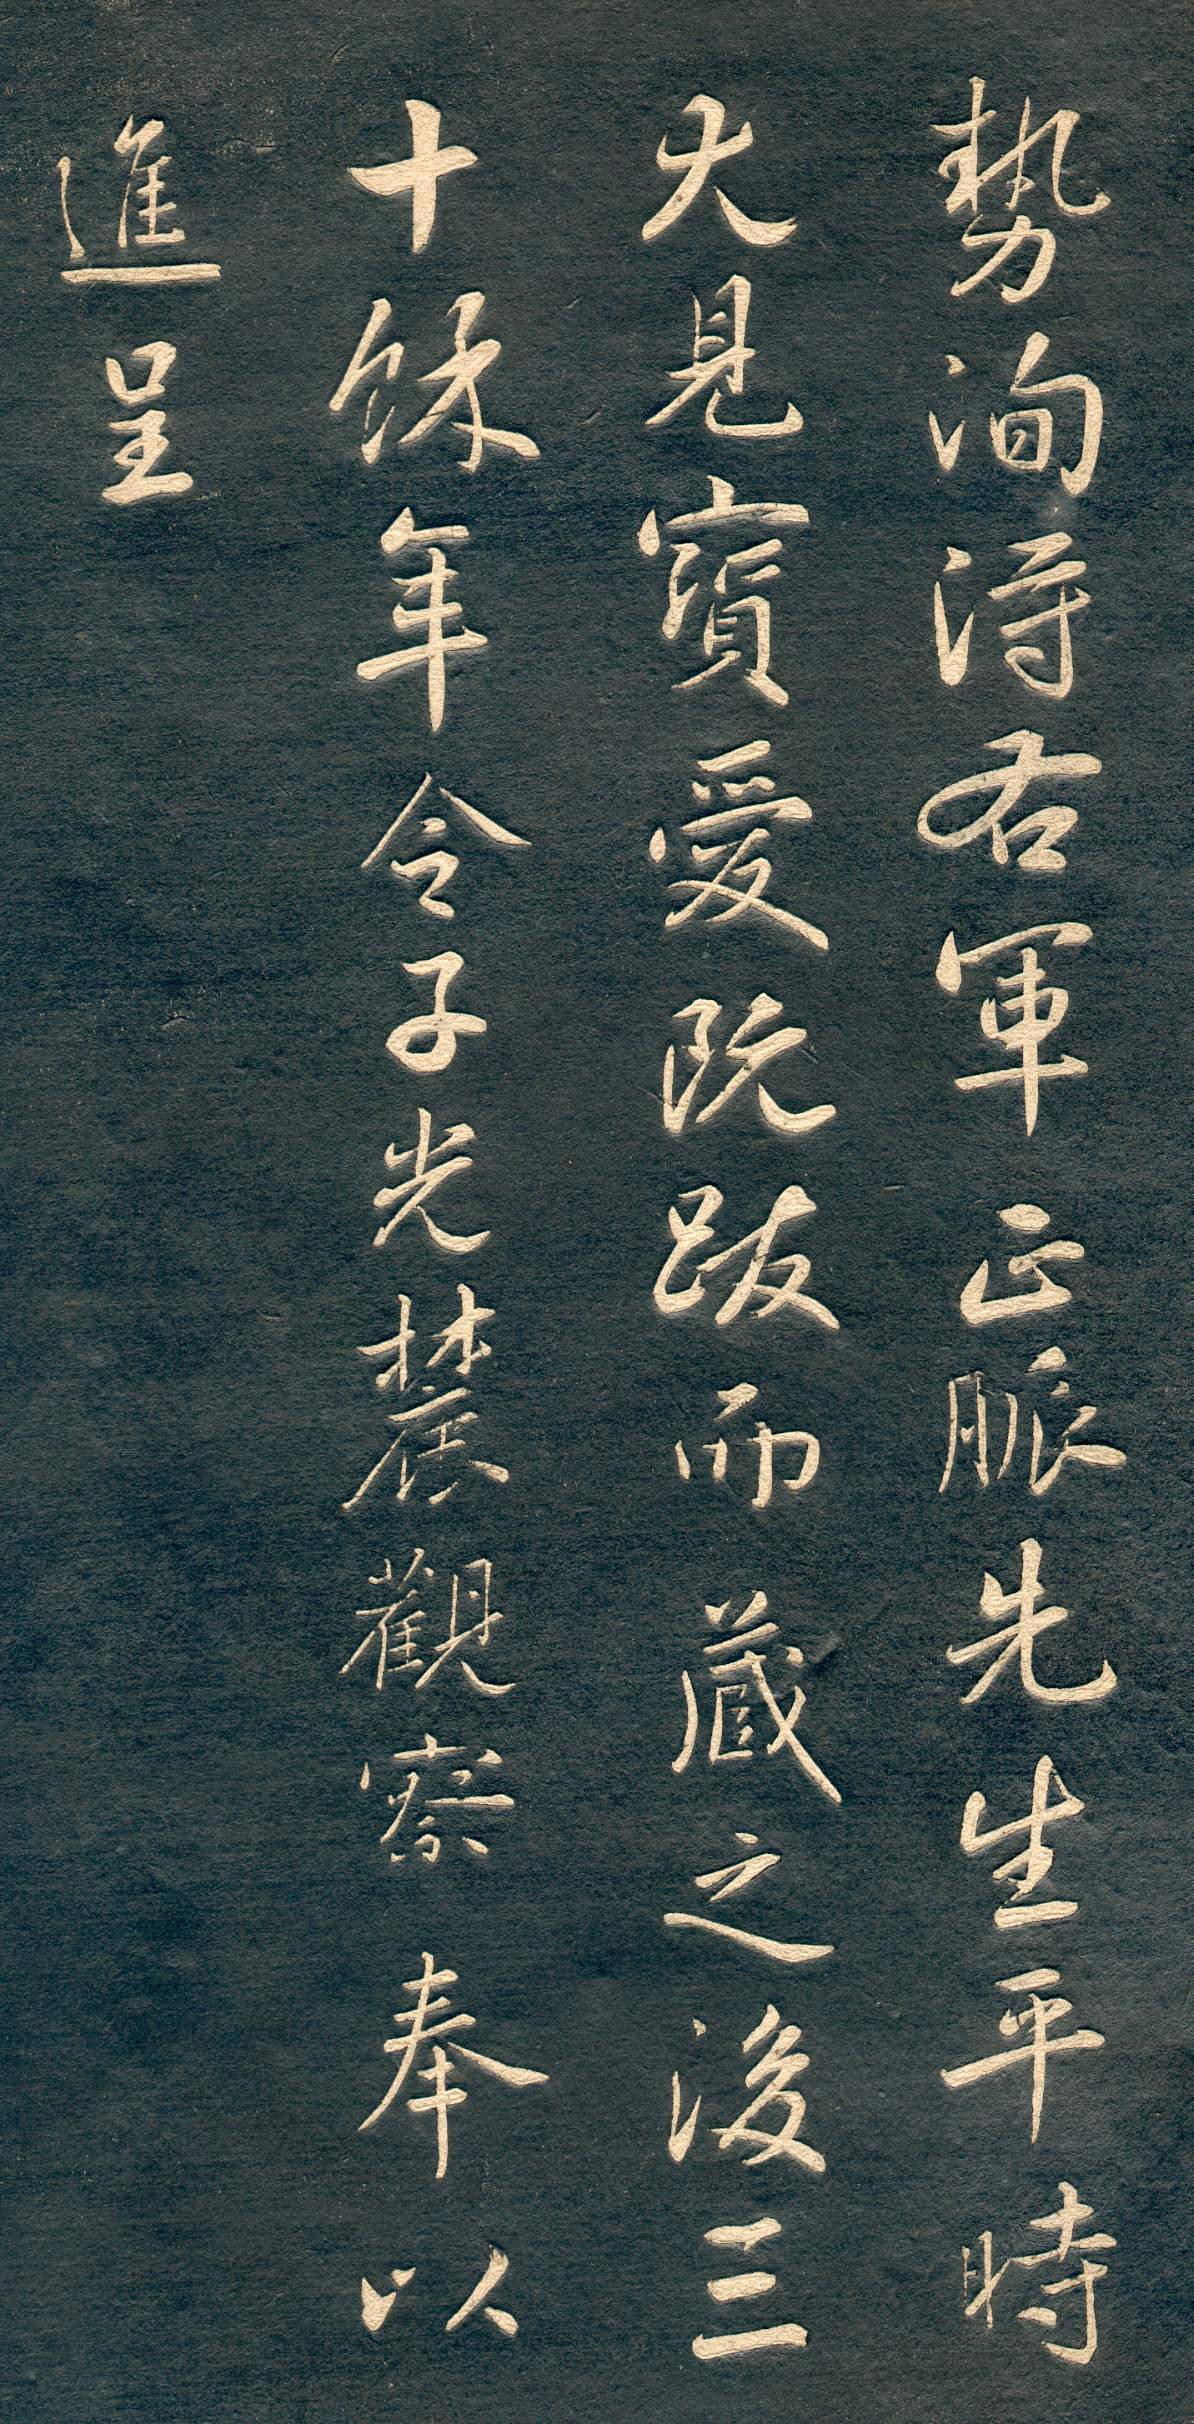 勢洵得右軍正脈先生平時
大見寶愛既跋而藏之後三
十餘年令子光楚觀察奉以
進呈